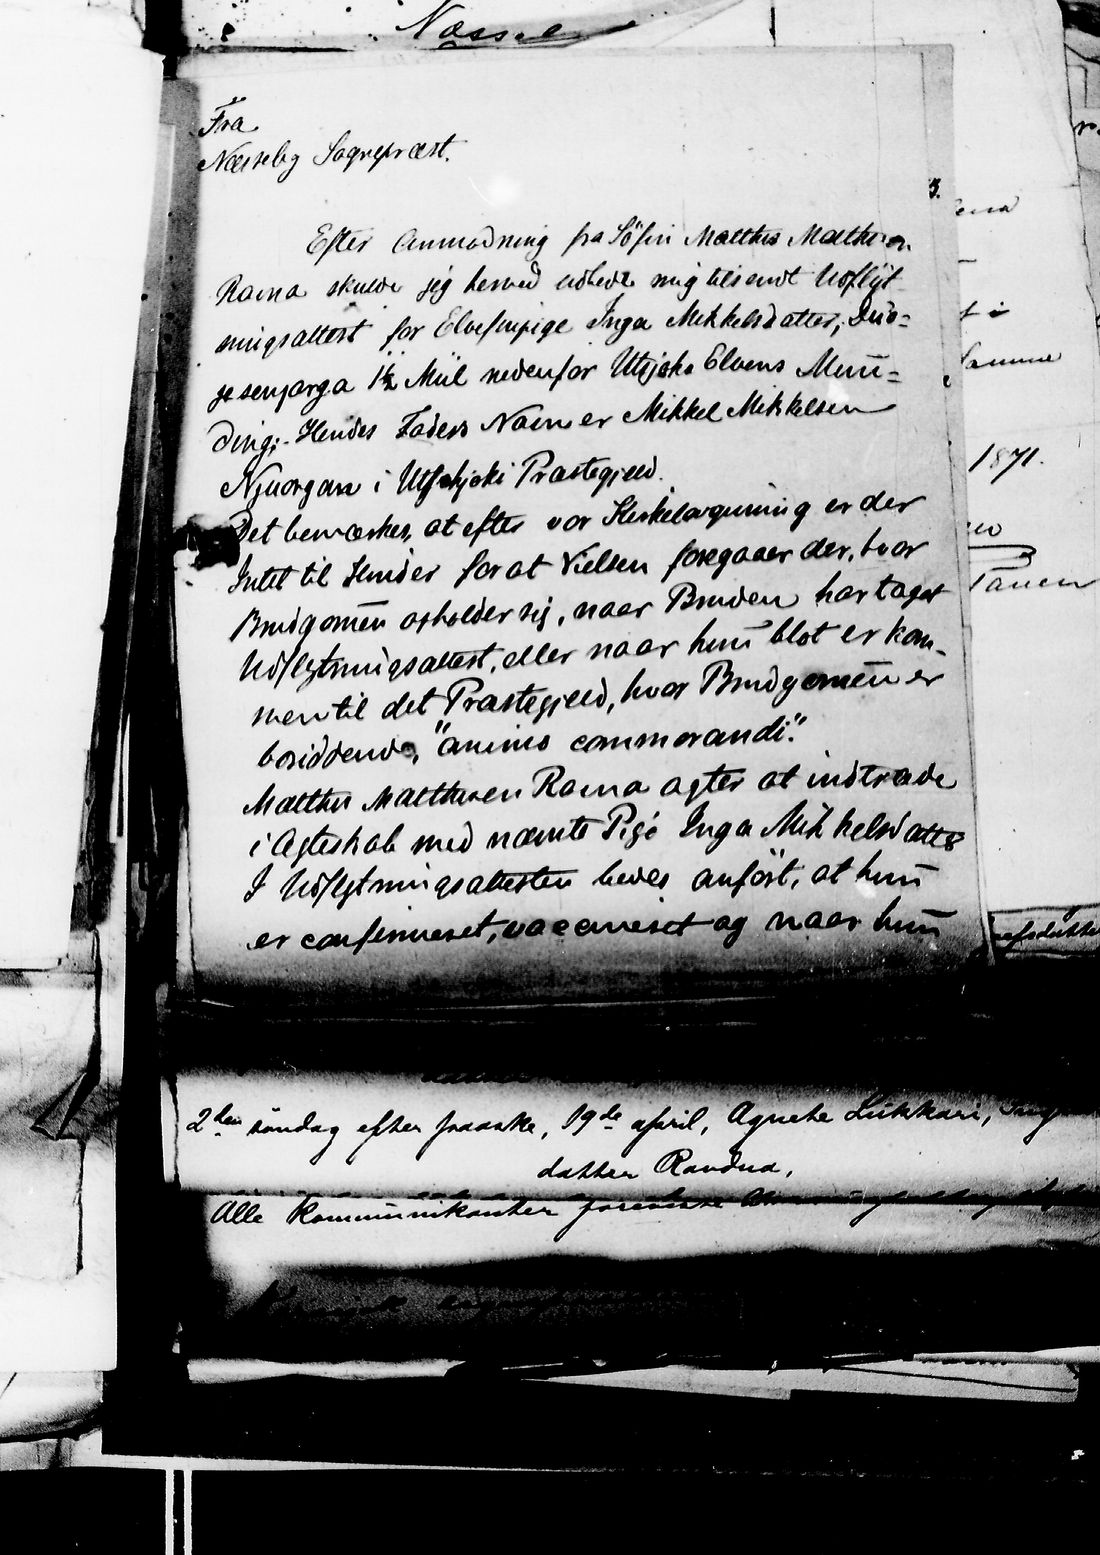 Næssel
Fra
Næsseby Sognepræst.
5.
Efter Anmodning fra Söfin Matthis Mathisen
Ravna skulde jeg herved udbede mig tilsendt Udflyt
ningsattest for Elvefinpige Inga Mikkelsdatter,
1½ Miil nedenfor Utsjoki Elvens Mun=
ding;. Hendes Faders Navn er Mikkel Mikkelsen
Njuorgam i Utsjoki Præstegjeld.
Det bemærkes, at efter vor Kirkelovgivning er der
Intet til Hinder for at Vielsen foregaaer der, hvor
Brudgomen opholder sig, naar Bruden har taget
Udflytningsattest, eller naar hun blot er kom-
men til det Præstegjeld, hvor Brudgomen er
boesiddende, "animo commorandi."
Matthis Matthisen Ravna agter at indtræde
i Ægteskab med nævnte Pige Inga Mikkelsdatter
I Udflytningsattesten bedes anført, at hun
er confirmeret, vaccineret og naar hun
Samme
1871.
Tanen
2den søndag efter paaske, 19de april, Agnete Lukkari,
datter Randna,
Alle kommunikanter